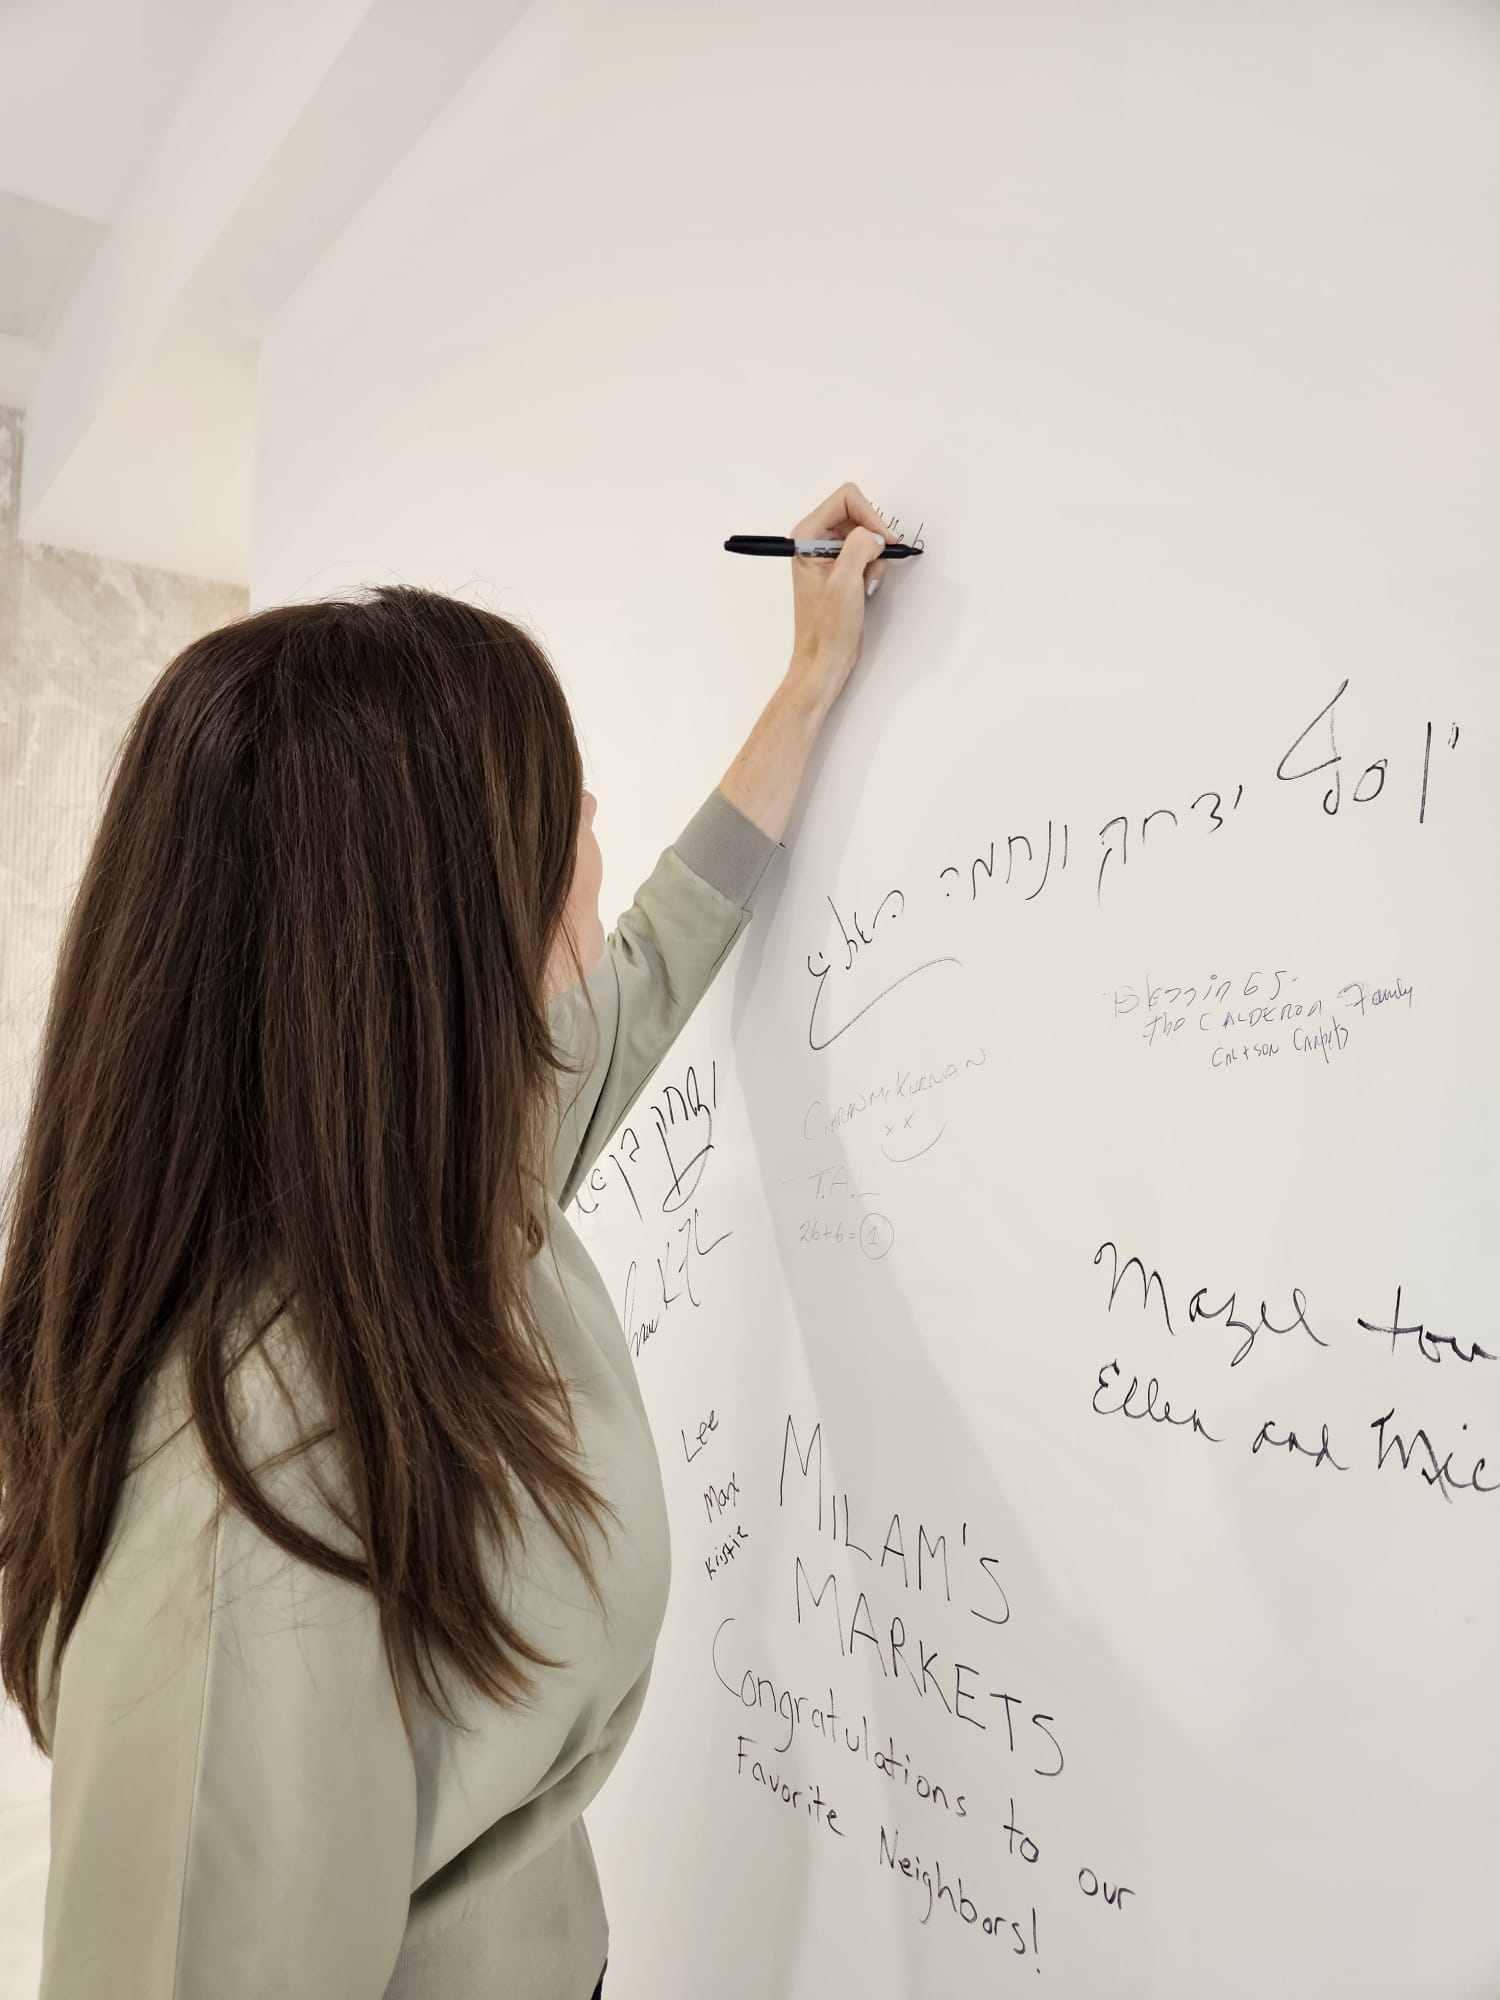 יוסף יצחק ונחמה
Blessings.
The CALDERON Family
CAL & SON Carpets
CIARAN McKIERNAN
xx
T.A.L
26+6=1
Mazel tov
Ellen and
Lee
Maxi
Kristie
MILAM'S
MARKETS
Congratulations to our
Favorite Neighbors!